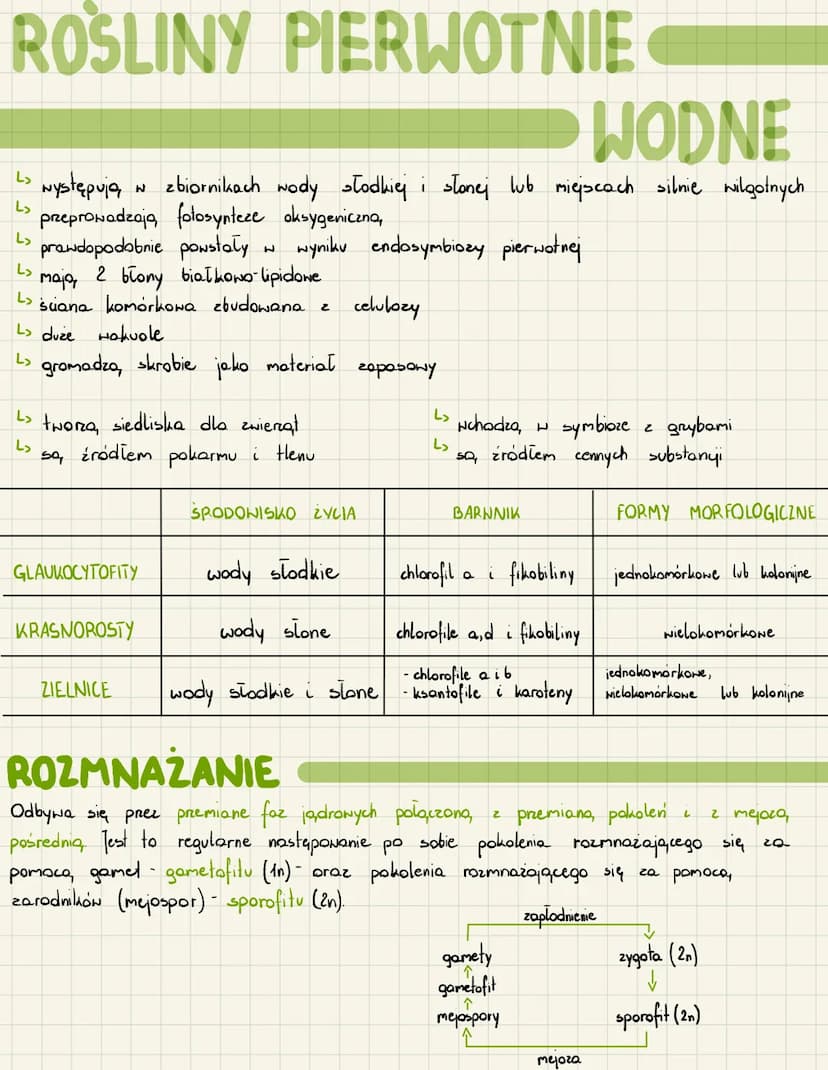 ROŚLINY PIERWOTNIE
WODNE
↳ występują w zbiornikach wody słodkiej i słonej lub miejscach silnie wilgotnych
↳ przeprowadzają fotosyntezę oksygeniczną
↳ prawdopodobnie powstały w wyniku endosymbiozy pierwotnej
↳ mają 2 błony białkowo-lipidowe
↳ ściana komórkowa zbudowana z celulozy
↳ duże wakuole
↳ gromadzą skrobie jako materiał zapasowy
↳ tworzą siedliska dla zwierząt
↳ są źródłem pokarmu i tlenu
↳ wchodzą w symbioze z grzybami
↳ są źródłem cennych substancji
ŚRODOWISKO ŻYCIA BARWNIK FORMY MORFOLOGICZNE
GLAUKOCYTOFITY wody słodkie chlorofil a i fikobiliny jednokomórkowe lub kolonijne
KRASNOROSTY wody słone chlorofile a,d i fikobiliny wielokomórkowe
ZIELNICE wody słodkie i słone - chlorofile a i b
- ksantofile i karoteny jednokomórkowe,
wielokomórkowe lub kolonijne
ROZMNAŻANIE
Odbywa się przez przemiane faz jądrowych połączoną z przemianą pokoleń i z mejozą
pośrednią. Jest to regularne następowanie po sobie pokolenia rozmnażającego się za
pomocą gamet - gametofitu (1n) - oraz pokolenia rozmnażającego się za pomocą
zarodników (mejospor) - sporofitu (2n).
zapłodnienie
gamety zygota (2n)
gametofit
mejospory sporofit (2n)
mejoza